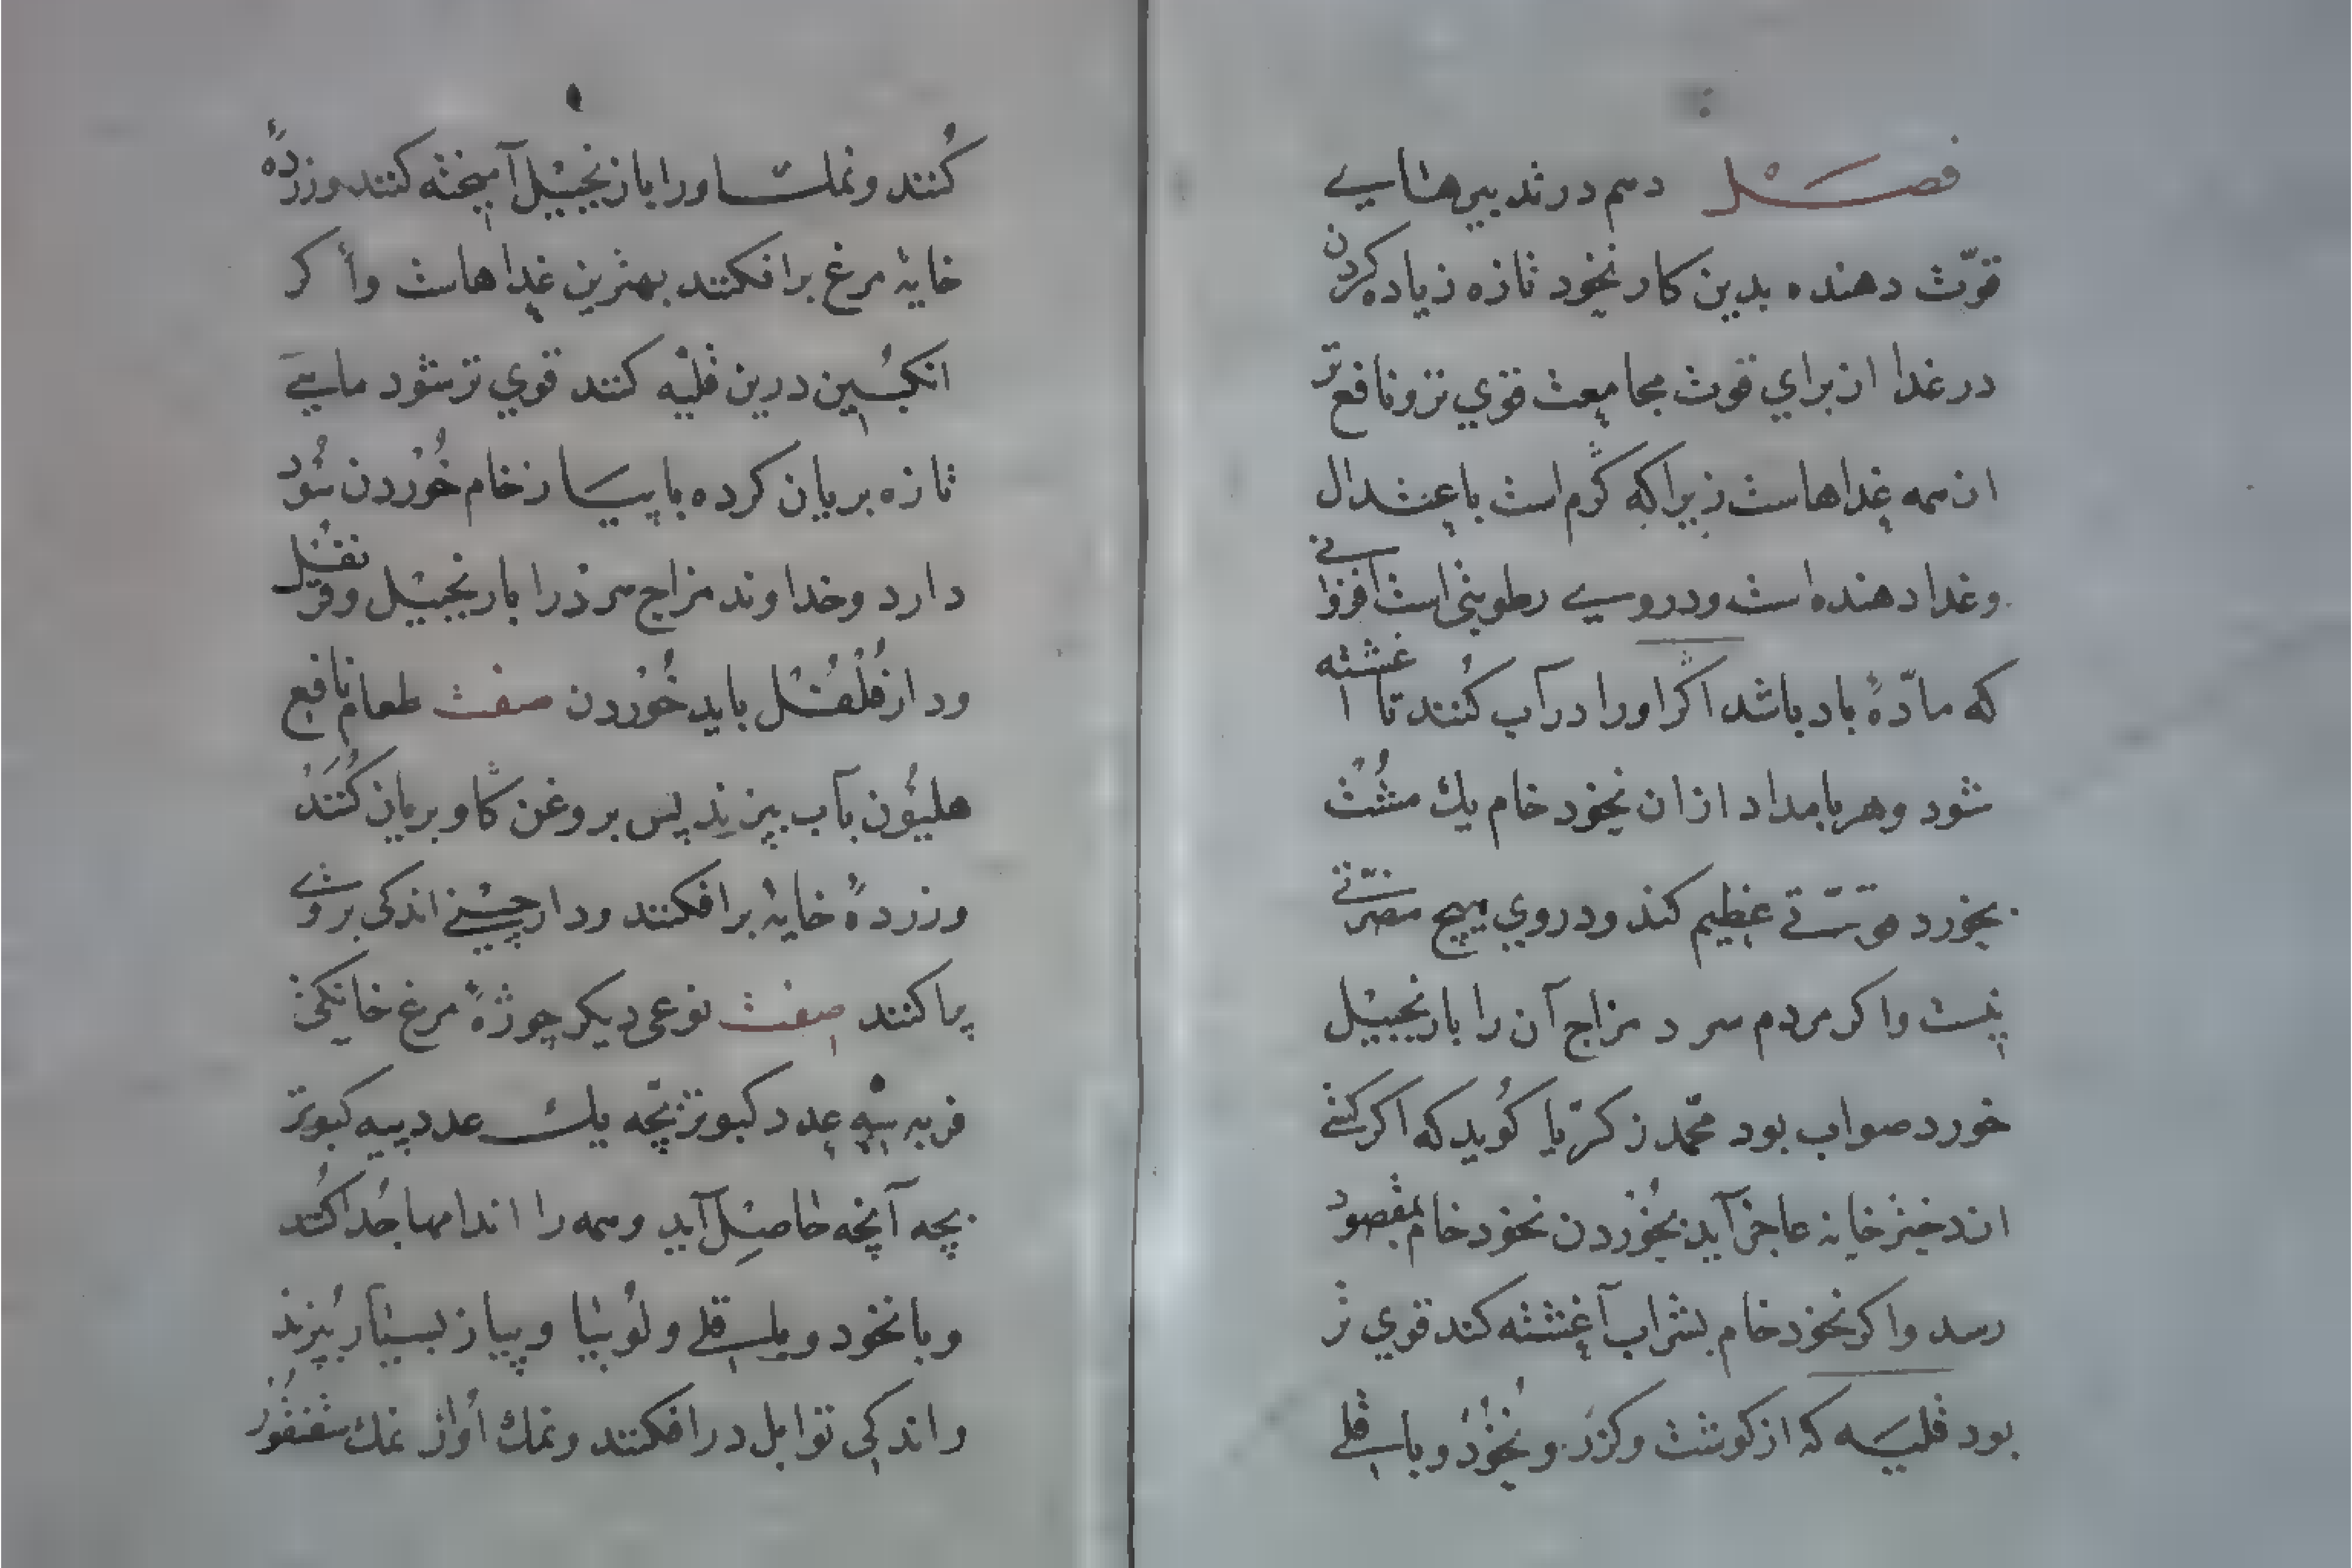 فصل دهم در تدبیرهایی
قوّت دهنده بدین کار نخود تازه زیاده کردن
در غدا از برای قوت مجامعت قوی تر و نافع تر
از همه غداهاست زیرا که گرم است باعتدال
و غدا دهنده است و در وی رطوبتی است افزونی
که مادّهٔ باد باشد اگر او را در آب کنند تا اغشته
شود و هر بامداد از ان نخود خام یك مشت
بخورد قوّتی عظیم کند و در وی هیچ مضرّتی
نیست واکر مردم سرد مزاج آن را با زنجبیل
خورد صواب بود محمّد زکریّا کوید که اکر کسی
از دختر خانه عاجز آید بخوردن نخود خام بمقصود
رسد واکر نخود خام بشراب آغشته کند قوی تر
بود قلیه که از کوشت و کزر و نخود و باقلی
کنند و نمك او را با زنجبیل آمیخته کنند و زردهٔ
خایهٔ مرغ برافکنند بهترین غداهاست واکر
انکبین درین قلیه کنند قوی تر شود ماهی
تازه بریان کرده با پیاز خام خوردن سود
دارد و خداوند مزاج سرد را با زنجبیل و قرنفل
و دار فلفل باید خوردن صفت طعام نافع
هلیون بآب بپزند پس بروغن کاو بریان کنند
و زردهٔ خایهٔ برافکنند و دارچینی اندکی بروی
پراکنند صفت نوعی دیکر چوژهٔ مرغ خانیکی
فربه سه عدد کبوتر بچه یك عدد پیه کبوتر
بچه آنچه حاصل آید و همه را اندامها جدا کنند
و با نخود و باقلی و لوبیا و پیاز بسیار بپزند
و اندکی توابل در افکنند و نمك او از نمك سقنقور